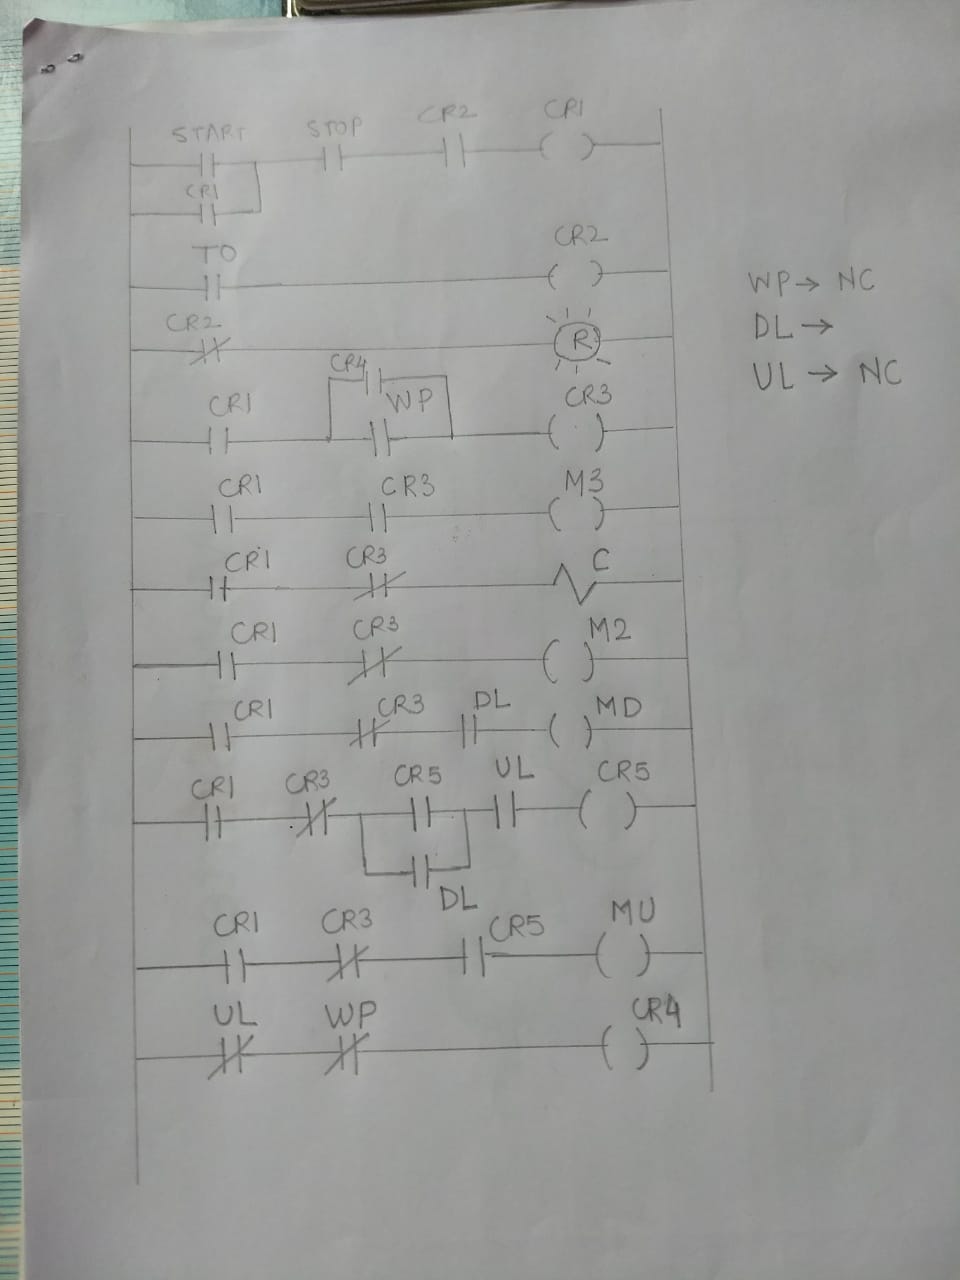 START STOP CR2 CR1
CR1
TO CR2
CR2 R
CR4
CR1 WP CR3
CR1 CR3 M3
CR1 CR3 C
CR1 CR3 M2
CR1 CR3 DL MD
CR1 CR3 CR5 UL CR5
DL
CR1 CR3 CR5 MU
UL WP CR4
WP→ NC
DL→
UL→ NC